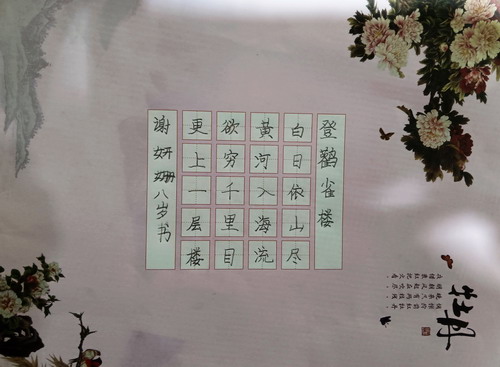 登鹳雀楼
白日依山尽
黄河入海流
欲穷千里目
更上一层楼
谢妍姗八岁书
牡丹